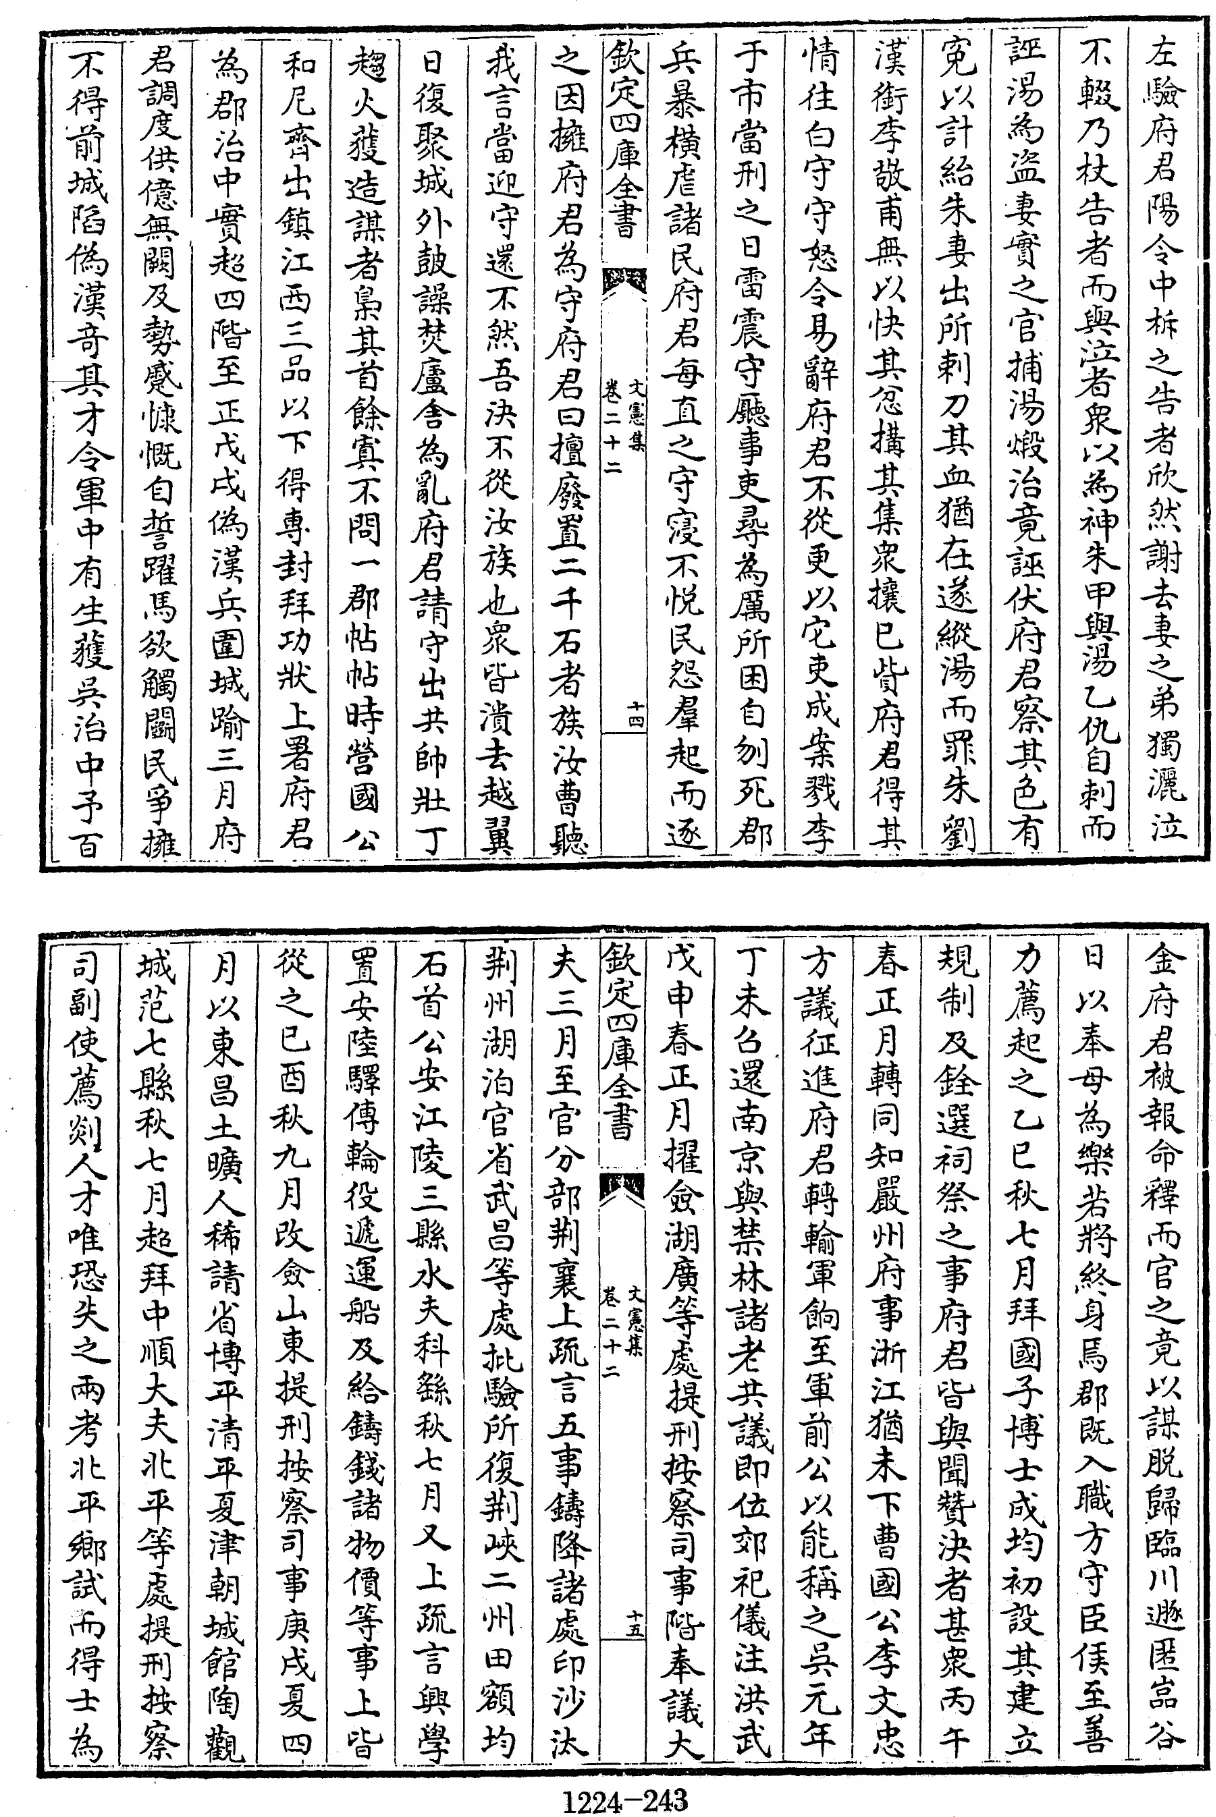 左驗府君陽令中柝之告者欣然謝去妻之弟獨灑泣
不輟乃杖告者而與泣者衆以為神朱甲與湯乙仇自刺而
誣湯為盜妻實之官捕湯煅治竟誣伏府君察其色有
寃以計紿朱妻出所刺刀其血猶在遂縱湯而罪朱劉
漢銜李敬甫無以快其忿搆其集衆攘已貲府君得其
情往白守守怒令易辭府君不從更以它吏成案戮李
于市當刑之日雷震守廳事吏尋為厲所困自刎死郡
兵暴横虐諸民府君每直之守寖不悦民怨羣起而逐
欽定四庫全書
文憲集
卷二十二
十四
之因擁府君為守府君曰擅廢置二千石者族汝曹聽
我言當迎守還不然吾決不從汝族也衆皆潰去越翼
日復聚城外鼓譟焚廬舍為亂府君請守出共帥壯丁
趨火獲造謀者梟其首餘寘不問一郡帖帖時營國公
和尼齊出鎮江西三品以下得專封拜功狀上署府君
為郡治中實超四階至正戊戌偽漢兵圍城踰三月府
君調度供億無闕及勢蹙慷慨自誓躍馬欲觸鬭民爭擁
不得前城陷偽漢竒其才令軍中有生獲吳治中予百
金府君被報命釋而官之竟以謀脱歸臨川遯匿嵓谷
日以奉母為樂若將終身焉郡既入職方守臣侯至善
力薦起之乙巳秋七月拜國子博士成均初設其建立
規制及銓選祠祭之事府君皆與聞贊決者甚衆丙午
春正月轉同知嚴州府事浙江猶未下曹國公李文忠
方議征進府君轉輸軍餉至軍前公以能稱之吳元年
丁未召還南京與禁林諸老共議即位郊祀儀注洪武
戊申春正月擢僉湖廣等處提刑按察司事階奉議大
欽定四庫全書
文憲集
卷二十二
十五
夫三月至官分部荆襄上疏言五事鑄降諸處印沙汰
荆州湖泊官省武昌等處批驗所復荆峽二州田額均
石首公安江陵三縣水夫科繇秋七月又上疏言興學
置安陸驛傳輪役遞運船及給鑄錢諸物價等事上皆
從之已酉秋九月改僉山東提刑按察司事庚戌夏四
月以東昌土曠人稀請省博平清平夏津朝城館陶觀
城范七縣秋七月超拜中順大夫北平等處提刑按察
司副使薦剡人才唯恐失之兩考北平鄉試而得士為
1224-243